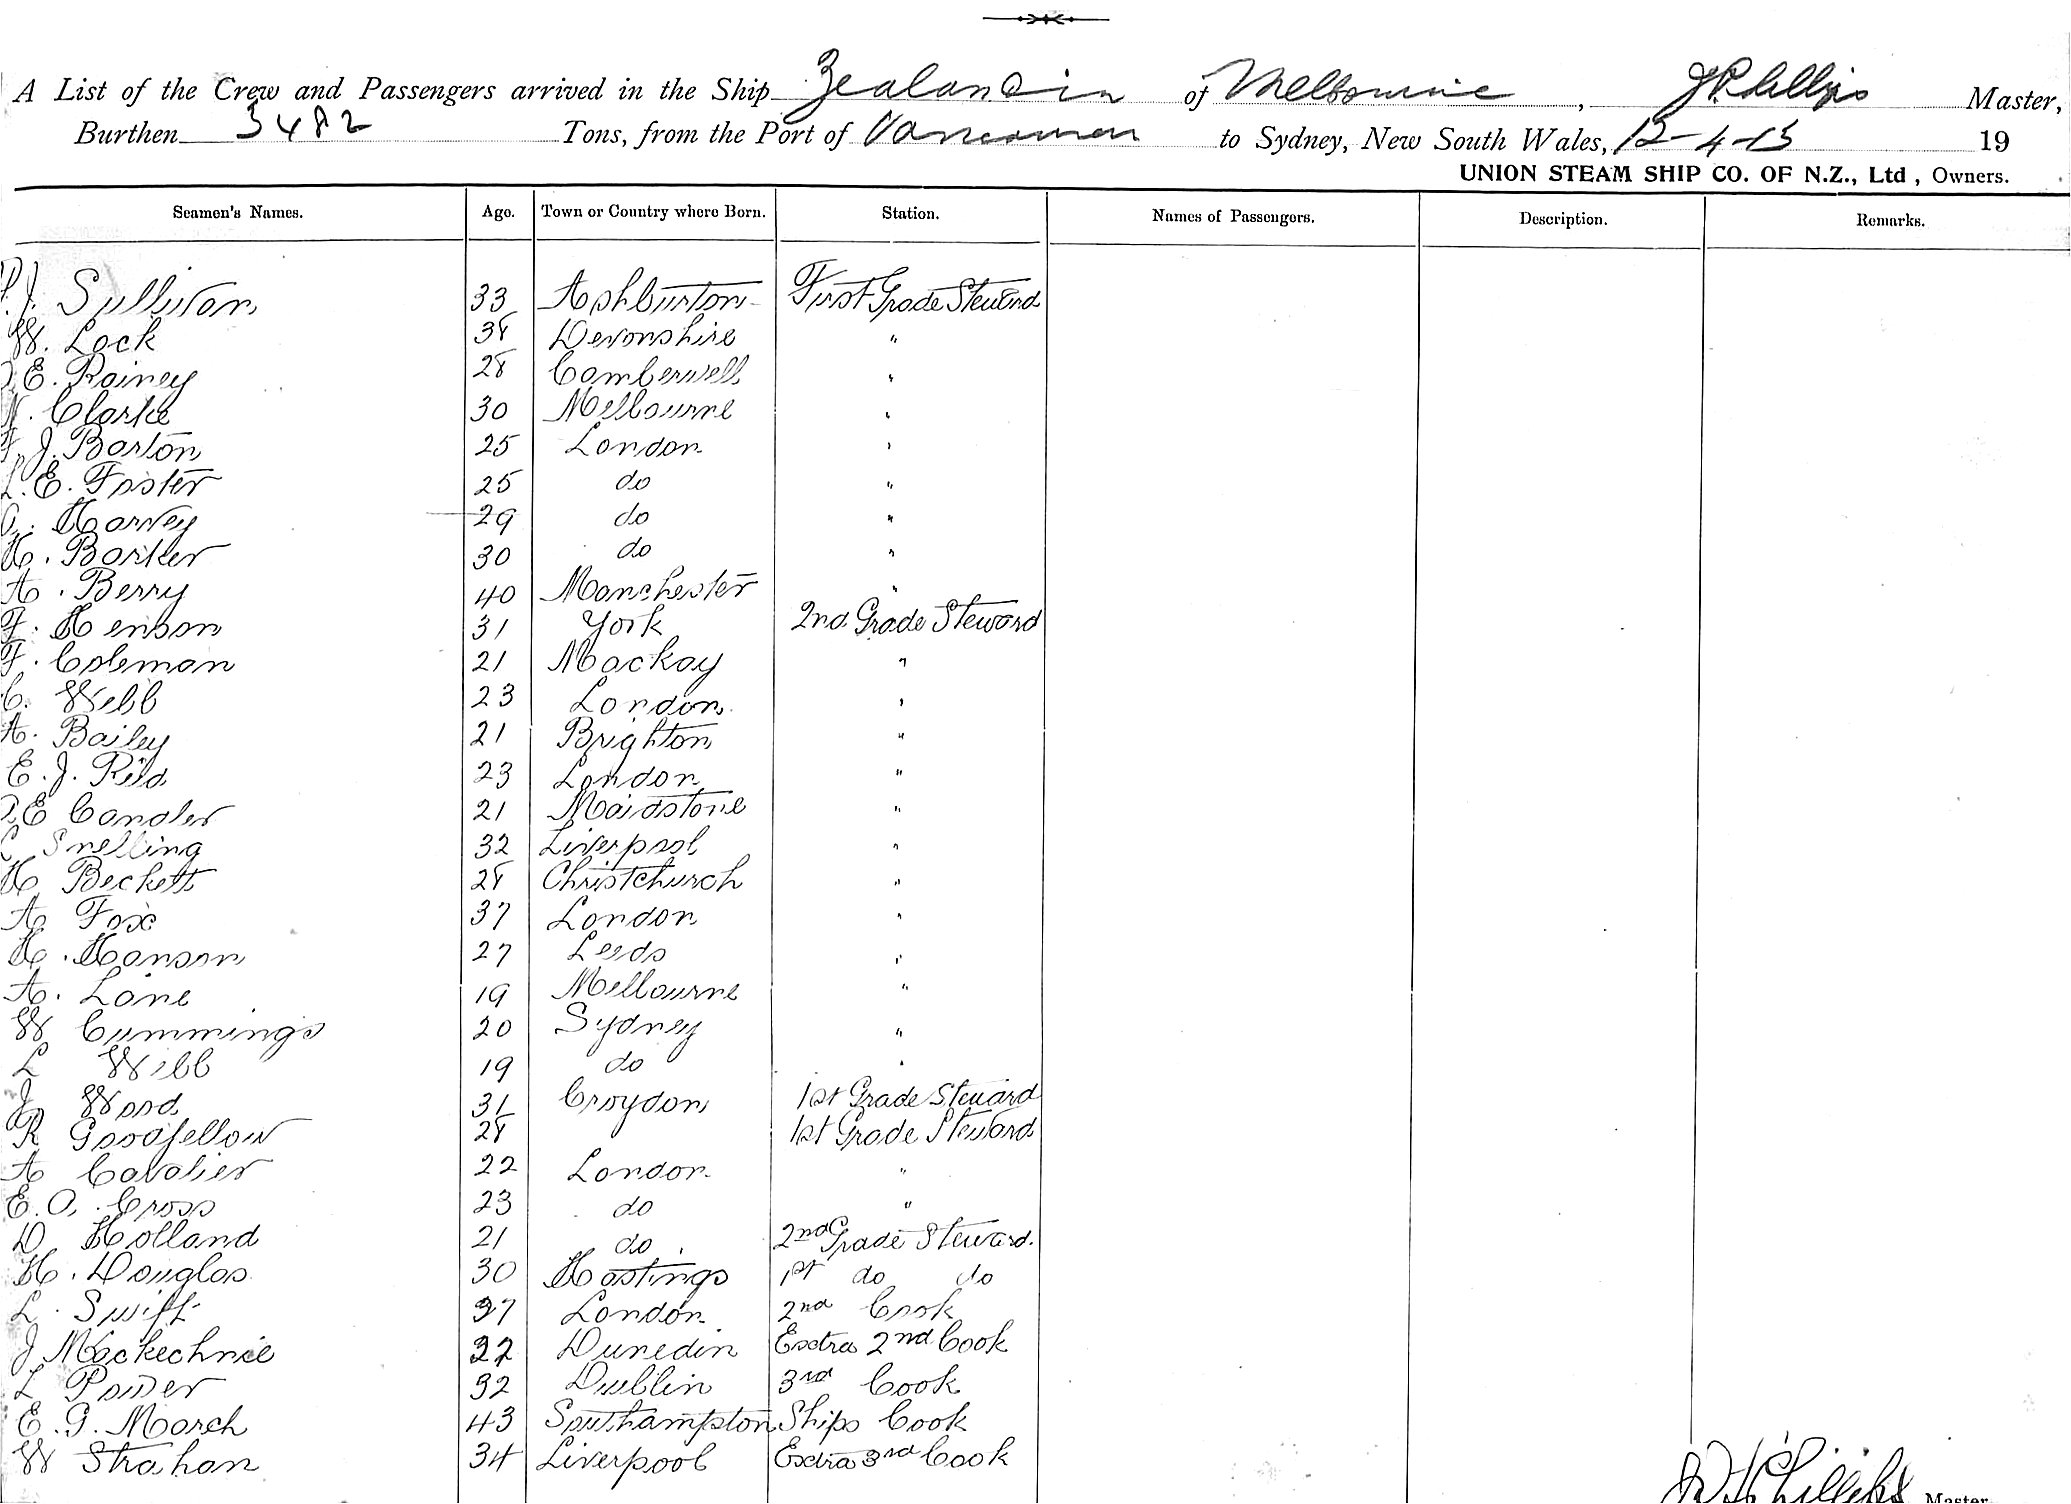 A List of the Crew and Passengers arrived in the Ship Zealandia of Melbourne, J Phillips Master,
Burthen 3482 Tons, from the Port of Vancouver to Sydney, New South Wales, 12-4-13 19
UNION STEAM SHIP CO. OF N.Z., Ltd, Owners.
Seamen's Names. Age. Town or Country where Born. Station. Names of Passengers. Description. Remarks.
J. Sullivan 33 Ashburton First Grade Steward
W. Lock 38 Devonshire "
E. Rainey 28 Camberwell "
Clarke 30 Melbourne "
F. J. Barton 25 London "
L. E. Foster 25 do "
Harvey 29 do "
H. Barker 30 do "
A. Berry 40 Manchester "
F. Henson 31 York 2nd. Grade Steward
F. Coleman 21 Mackay "
C. Webb 23 London "
A. Bailey 21 Brighton "
E. J. Reid 23 London "
E Candler 21 Maidstone "
Snelling 32 Liverpool "
H Beckett 28 Christchurch "
A Fox 37 London "
H. Hanson 27 Leeds "
A. Lane 19 Melbourne "
W Cummings 20 Sydney "
L Webb 19 do "
J Wood 31 Croydon 1st Grade Steward
R Goodfellow 28 1st Grade Steward
A Cavalier 22 London "
E. A. Cross 23 do "
D Holland 21 do 2nd Grade Steward.
H. Douglas 30 Hastings 1st do do
L. Swift 37 London 2nd Cook
J Mackechnie 32 Dunedin Extra 2nd Cook
L Power 32 Dublin 3rd Cook
E. G. March 43 Southampton Ships Cook
W Strahan 34 Liverpool Extra 3rd Cook
Phillips Master